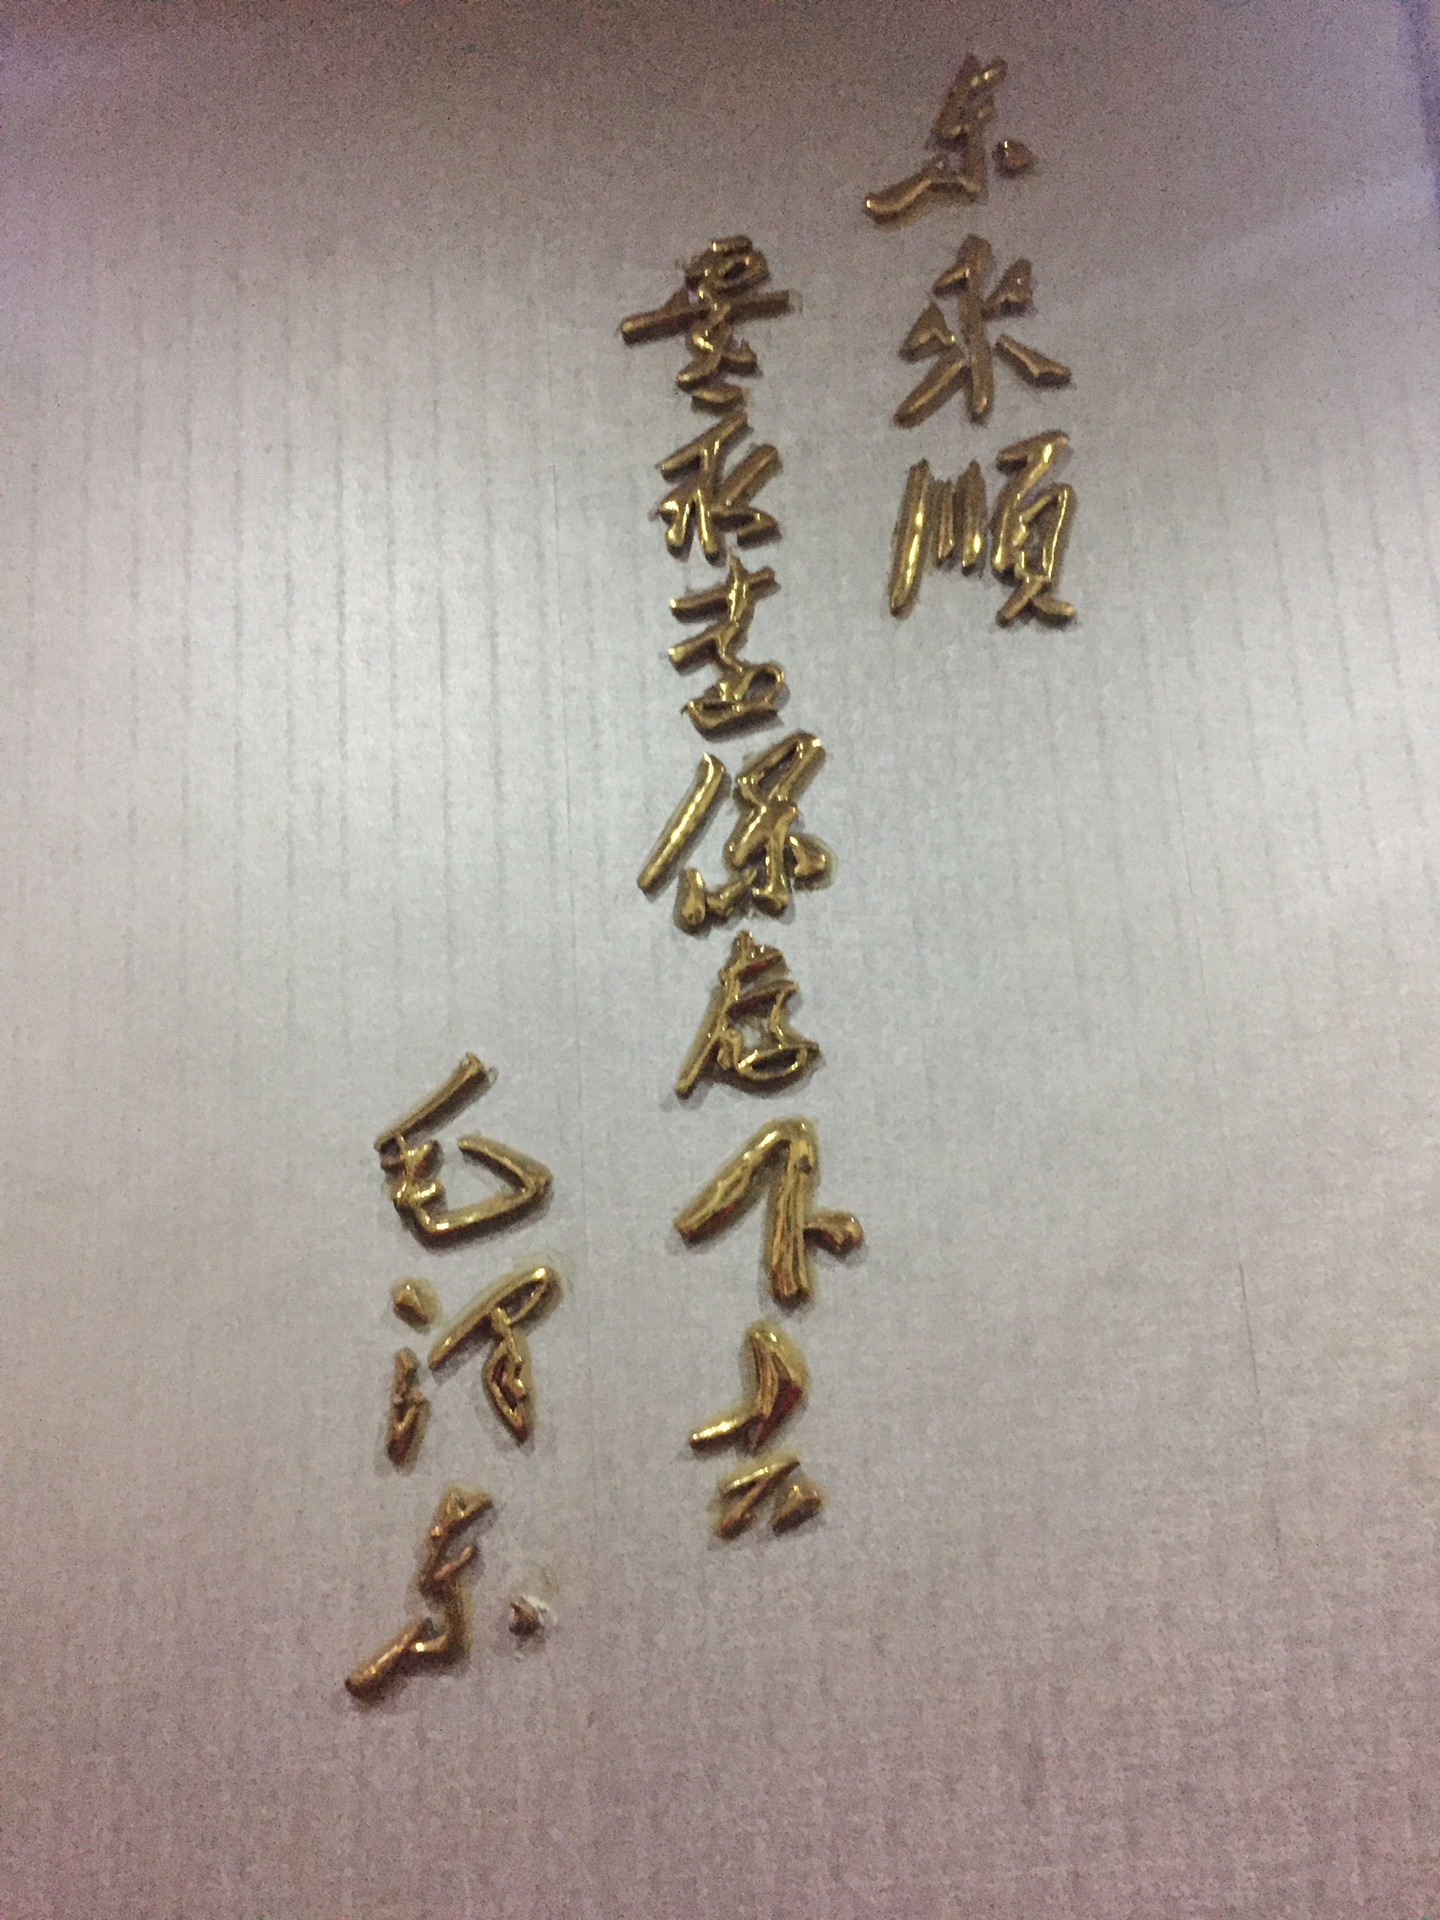 东来顺
要永远保存下去
毛泽东